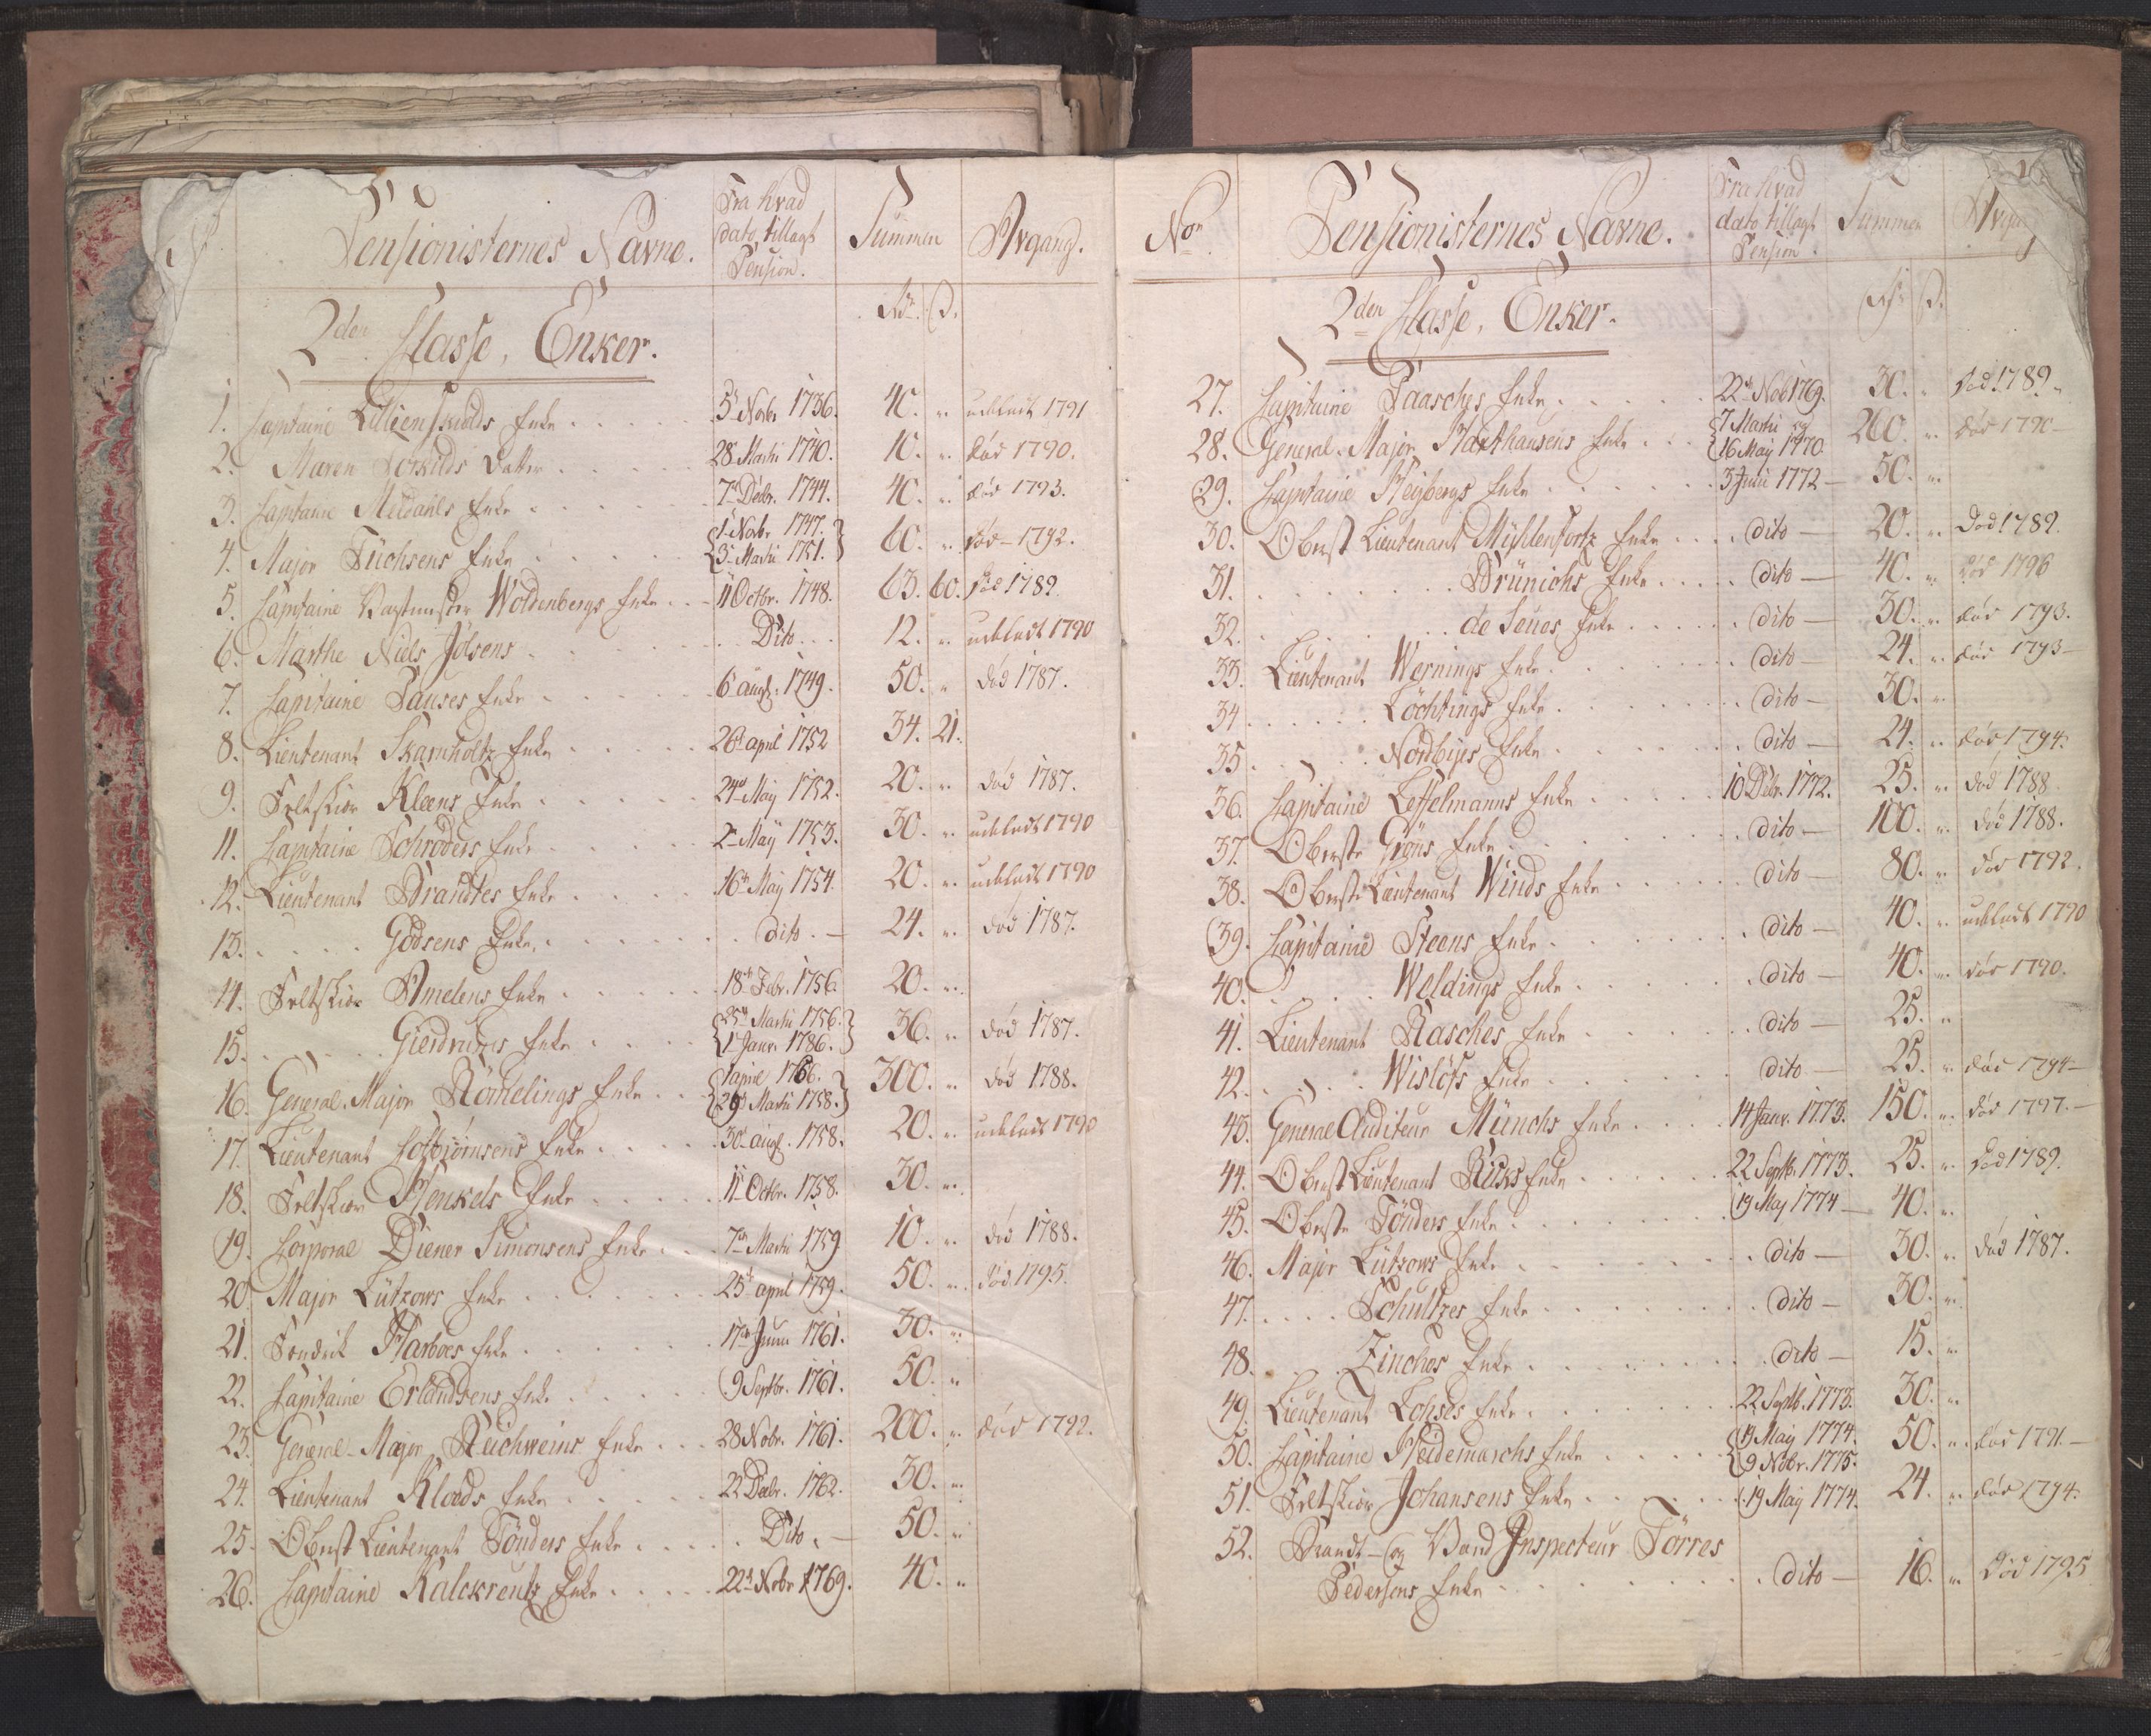 Pensionisternes Navne. Fra hvad dato tillagt Pension. Summen Afgang.
Rdr. s.
2den Classe, Enker.
1. Capitaine Lillienskiolds Enke 5te Novbr 1736. 40. " udeladt 1791
2. Maren Torkilds Datter 28 Martii 1740. 10. " død 1790.
3. Capitaine Meidahls Enke 7de Decbr. 1744. 40. " død 1793.
4. Major Füchsens Enke {1te Novbr 1747. 3te Martii 1751.} 60. " død – 1792.
5. Capitaine Vagtmester Woldenbergs Enke 11 Octbr. 1748. 63. 60. død 1789.
6. Marthe Niels Jolsens Dito 12. " udeladt 1790
7. Capitaine Pauses Enke 6te augl. 1749. 50. " død 1787.
8. Lieutenant Skarnholtz Enke 26de april 1752 34. 21.
9. Feltskiær Kleens Enke 24de May 1752. 20. " død 1787.
11. Capitaine Schrøders Enke 2de May 1753. 30. " udeladt 1790
12. Lieutenant Brandtes Enke 16de May 1754. 20. " udeladt 1790
13. Godsens Enke dito. – 24. " død 1787.
14. Feltskiær Amelens Enke 18de Febr. 1756. 20. "
15. Gierdrums Enke {25de Martii 1756. 1te Janr. 1786.} 36. " død 1787.
16. General-Major Rømelings Enke {1 april 1766. 29de Martii 1758.} 300. " død 1788.
17. Lieutenant Colbiørnsens Enke 30de augl. 1758. 20. " udeladt 1790
18. Feltskiær Henkels Enke 11te Octbr. 1758. 30. "
19. Corporal Diener Simonsens Enke 7de Martii 1759 10. " død 1788.
20. Major Lützows Enke 25de april 1759. 50. " død 1795.
21. Fendrik Harboes Enke 17de Junii 1761. 30. "
22. Capitaine Erlandsens Enke 9 Septbr. 1761. 50. "
23. General-Major Reichweins Enke 28 Nobr. 1761. 200. " død 1792.
24. Lieutenant Kloeds Enke 22 Decbr. 1762. 30. "
25. Oberst Lieutenant Tønders Enke Dito. – 50. "
26. Capitaine Kalckreutz Enke 22de Nobr 1769. 40. "
No. Pensionisternes Navne. Fra hvad dato tillagt Pension. Summen
Rdr s.
2den Classe, Enker.
27. Capitaine Paasches Enke 22de Nob 1769. 30. " død 1789.
28. General-Major Haxthausens Enke {7 Martii og 16 May 1770. 200. " død 1790 –
29. Capitaine Heybergs Enke 3 Junii 1772 – 50. "
30. Oberst Lieutenant Mühlenfortz Enke dito – 20. " død 1789.
31. Brünichs Enke dito – 40. " død 1796
32. de Seues Enke dito – 30. " død 1793.
33. Lieutenant Wernings Enke dito – 24. " død 1793 –
34. Løchtings Enke dito – 30. "
35. Nordbyes Enke dito – 24. " død 1794.
36. Capitaine Teffelmanns Enke 10 Debr. 1772. 25. " død 1788.
37. Oberste Grøns Enke dito – 100. " død 1788.
38. Oberste Lieutenant Winds Enke dito – 80. " død 1792.
39. Capitaine Steens Enke dito – 40. " udeladt 1790
40. Weldings Enke dito – 40. " død 1790.
41. Lieutenant Rasches Enke dito – 25. "
42. Wisløfs Enke dito – 25. " død 1794 –
43. General Auditeur Münchs Enke 14 Janr. 1773. 150. " død 1797. –
44. Oberst Lieutenant Ricks Enke 22 Septb. 1773. 25. " død 1789.
45. Oberste Tønders Enke 19 May 1774 – 40. "
46. Major Lützows Enke dito – 30. " død 1787.
47. Schultzes Enke dito – 30. "
48. Zinches Enke dito – 15. "
49. Lieutenant Lohses Enke 22 Septb. 1773. 30. "
50. Capitaine Heidemarchs Enke {19 May 1774. 9 Nobr. 1775. 50. " død 1791 –
51. Feltskiær Johansens Enke 19 May 1774. 24. " død 1794.
52. Brandt – og Vand Inspecteur Tørres
Pedersens Enke dito – 16. " død 1795